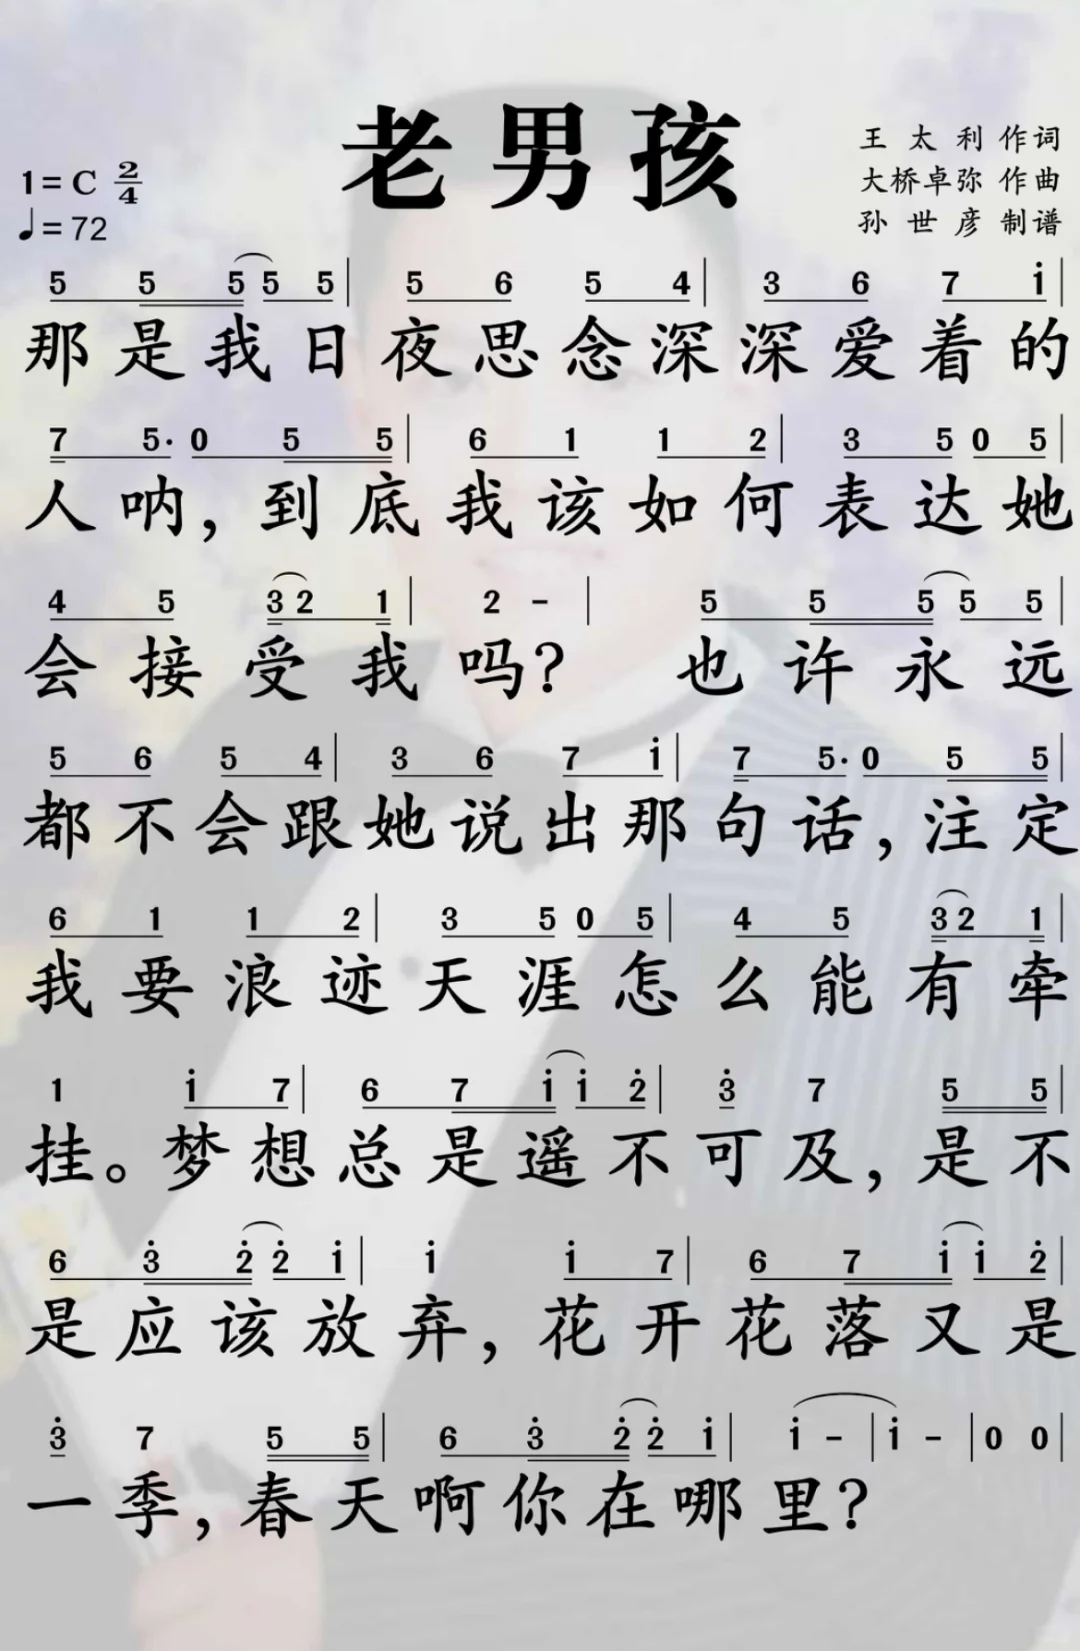 老男孩
王太利 作词
大桥卓弥 作曲
孙世彦 制谱
1=C 2/4
♩=72
5 5 5 5 5 | 5 6 5 4 | 3 6 7 i |
那是我日夜思念深深爱着的
7 5· 0 5 5 | 6 1 1 2 | 3 5 0 5 |
人呐，到底我该如何表达她
4 5 3 2 1 | 2 - | 5 5 5 5 5 |
会接受我吗？ 也许永远
5 6 5 4 | 3 6 7 i | 7 5· 0 5 5 |
都不会跟她说出那句话，注定
6 1 1 2 | 3 5 0 5 | 4 5 3 2 1 |
我要浪迹天涯怎么能有牵
1 i 7 | 6 7 i i 2̇ | 3̇ 7 5 5 |
挂。梦想总是遥不可及，是不
6 3̇ 2̇ 2̇ i | i i 7 | 6 7 i i 2̇ |
是应该放弃，花开花落又是
3̇ 7 5 5 | 6 3̇ 2̇ 2̇ i | i - | i - | 0 0 |
一季，春天啊你在哪里？